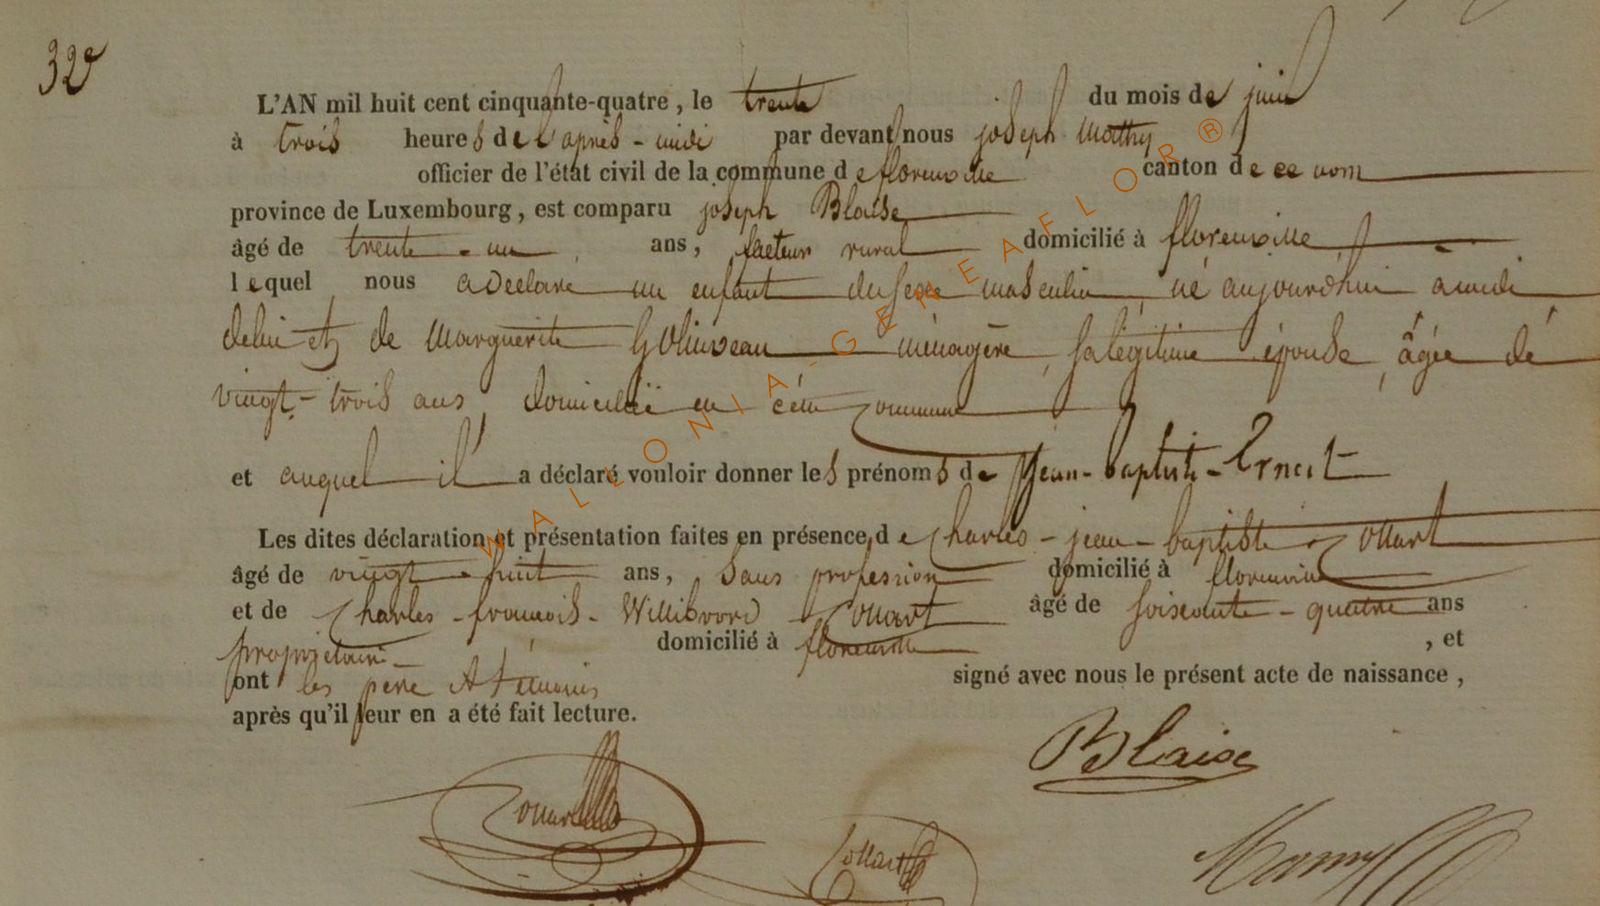 32e
L'AN mil huit cent cinquante-quatre, le trente du mois de juin
à trois heures de l'après-midi par devant nous joseph Mathy
officier de l'état civil de la commune de florenville canton de ce nom
province de Luxembourg, est comparu joseph Blaise
âgé de trente-un ans, facteur rural domicilié à florenville
lequel nous a déclaré un enfant du sexe masculin, né aujourd'hui à midi
de lui et de Marguerite Golinveau ménagère, sa légitime épouse, âgée de
vingt-trois ans, domiciliée en cette commune
et auquel il a déclaré vouloir donner les prénoms de jean-baptiste-Ernest
Les dites déclaration et présentation faites en présence de Charles-jean-baptiste Collart
âgé de vingt-huit ans, sans profession domicilié à florenville
et de Charles-françois-Willibrord Collart âgé de soixante-quatre ans
propriétaire domicilié à florenville, et
ont les père et témoins signé avec nous le présent acte de naissance,
après qu'il leur en a été fait lecture.
Blaise
Collart
Collart
WALLONIA-GENEAFLOR®